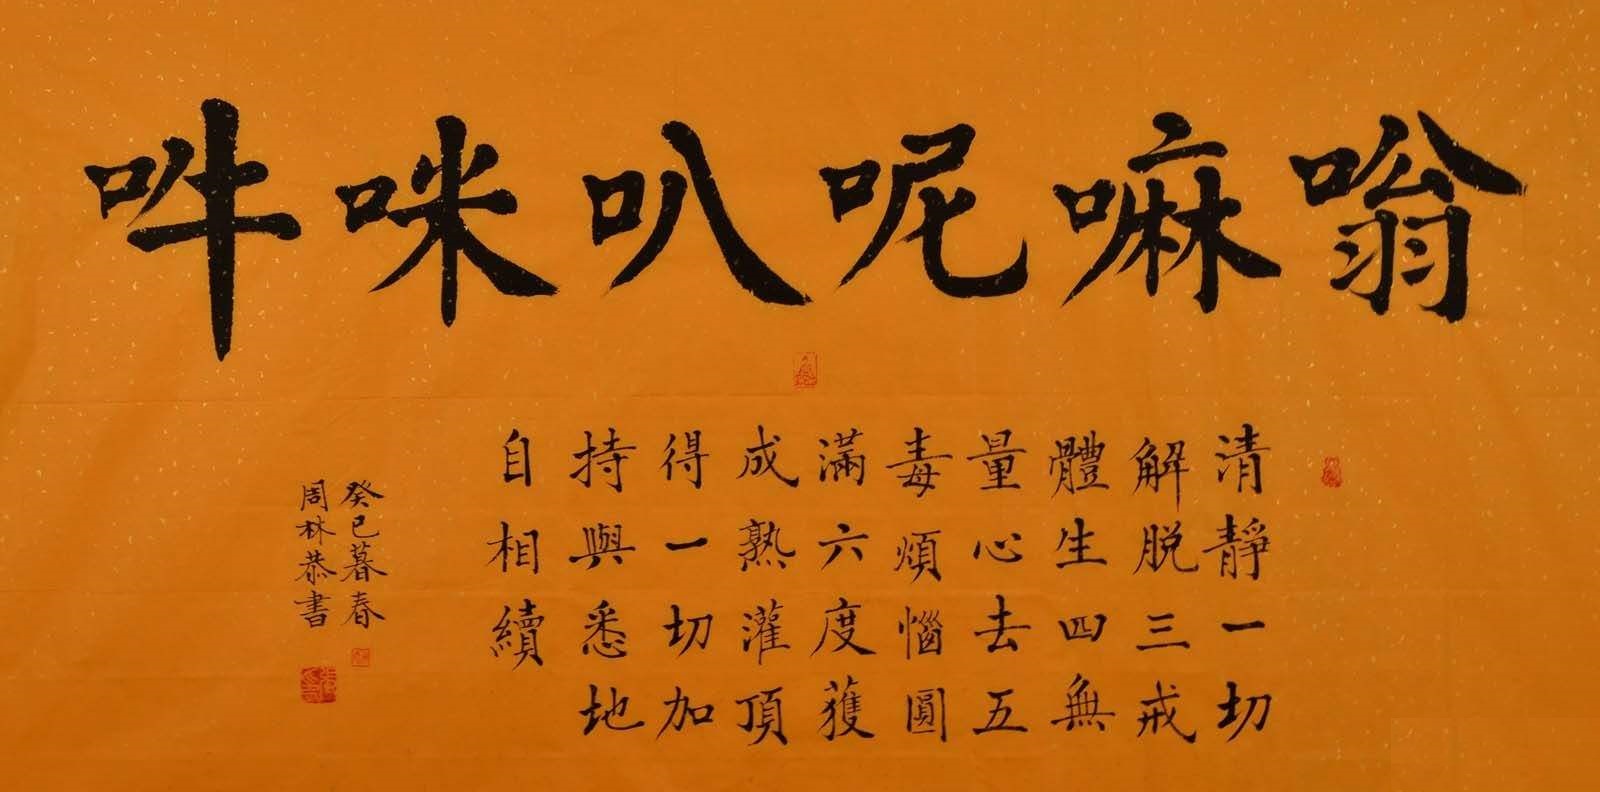 嗡嘛呢叭咪吽
清靜一切
解脱三戒
體生四無
量心去五
毒煩惱圓
滿六度獲
成熟灌頂
得一切加
持與悉地
自相續
癸巳暮春
周林恭書